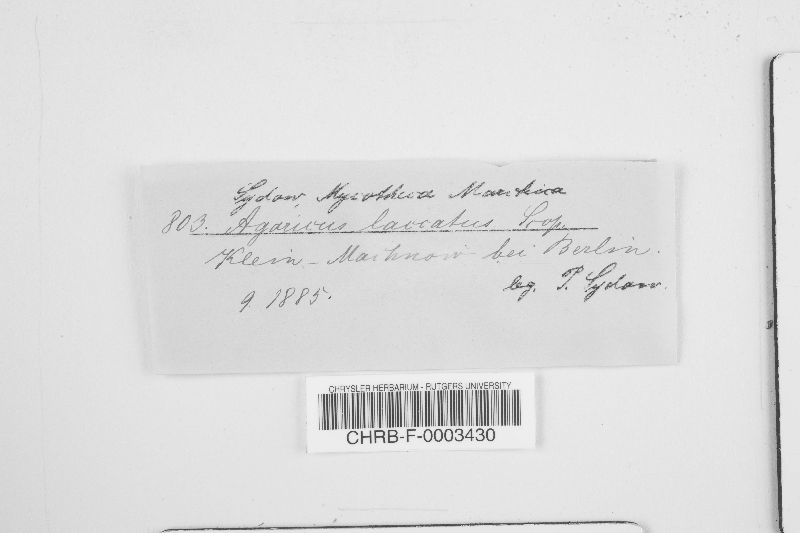 Sydow, Mycotheca Marchica
803. Agaricus laccatus Scop.
Klein-Machnow bei Berlin.
9 1885.
leg. P. Sydow.
CHRYSLER HERBARIUM - RUTGERS UNIVERSITY
CHRB-F-0003430